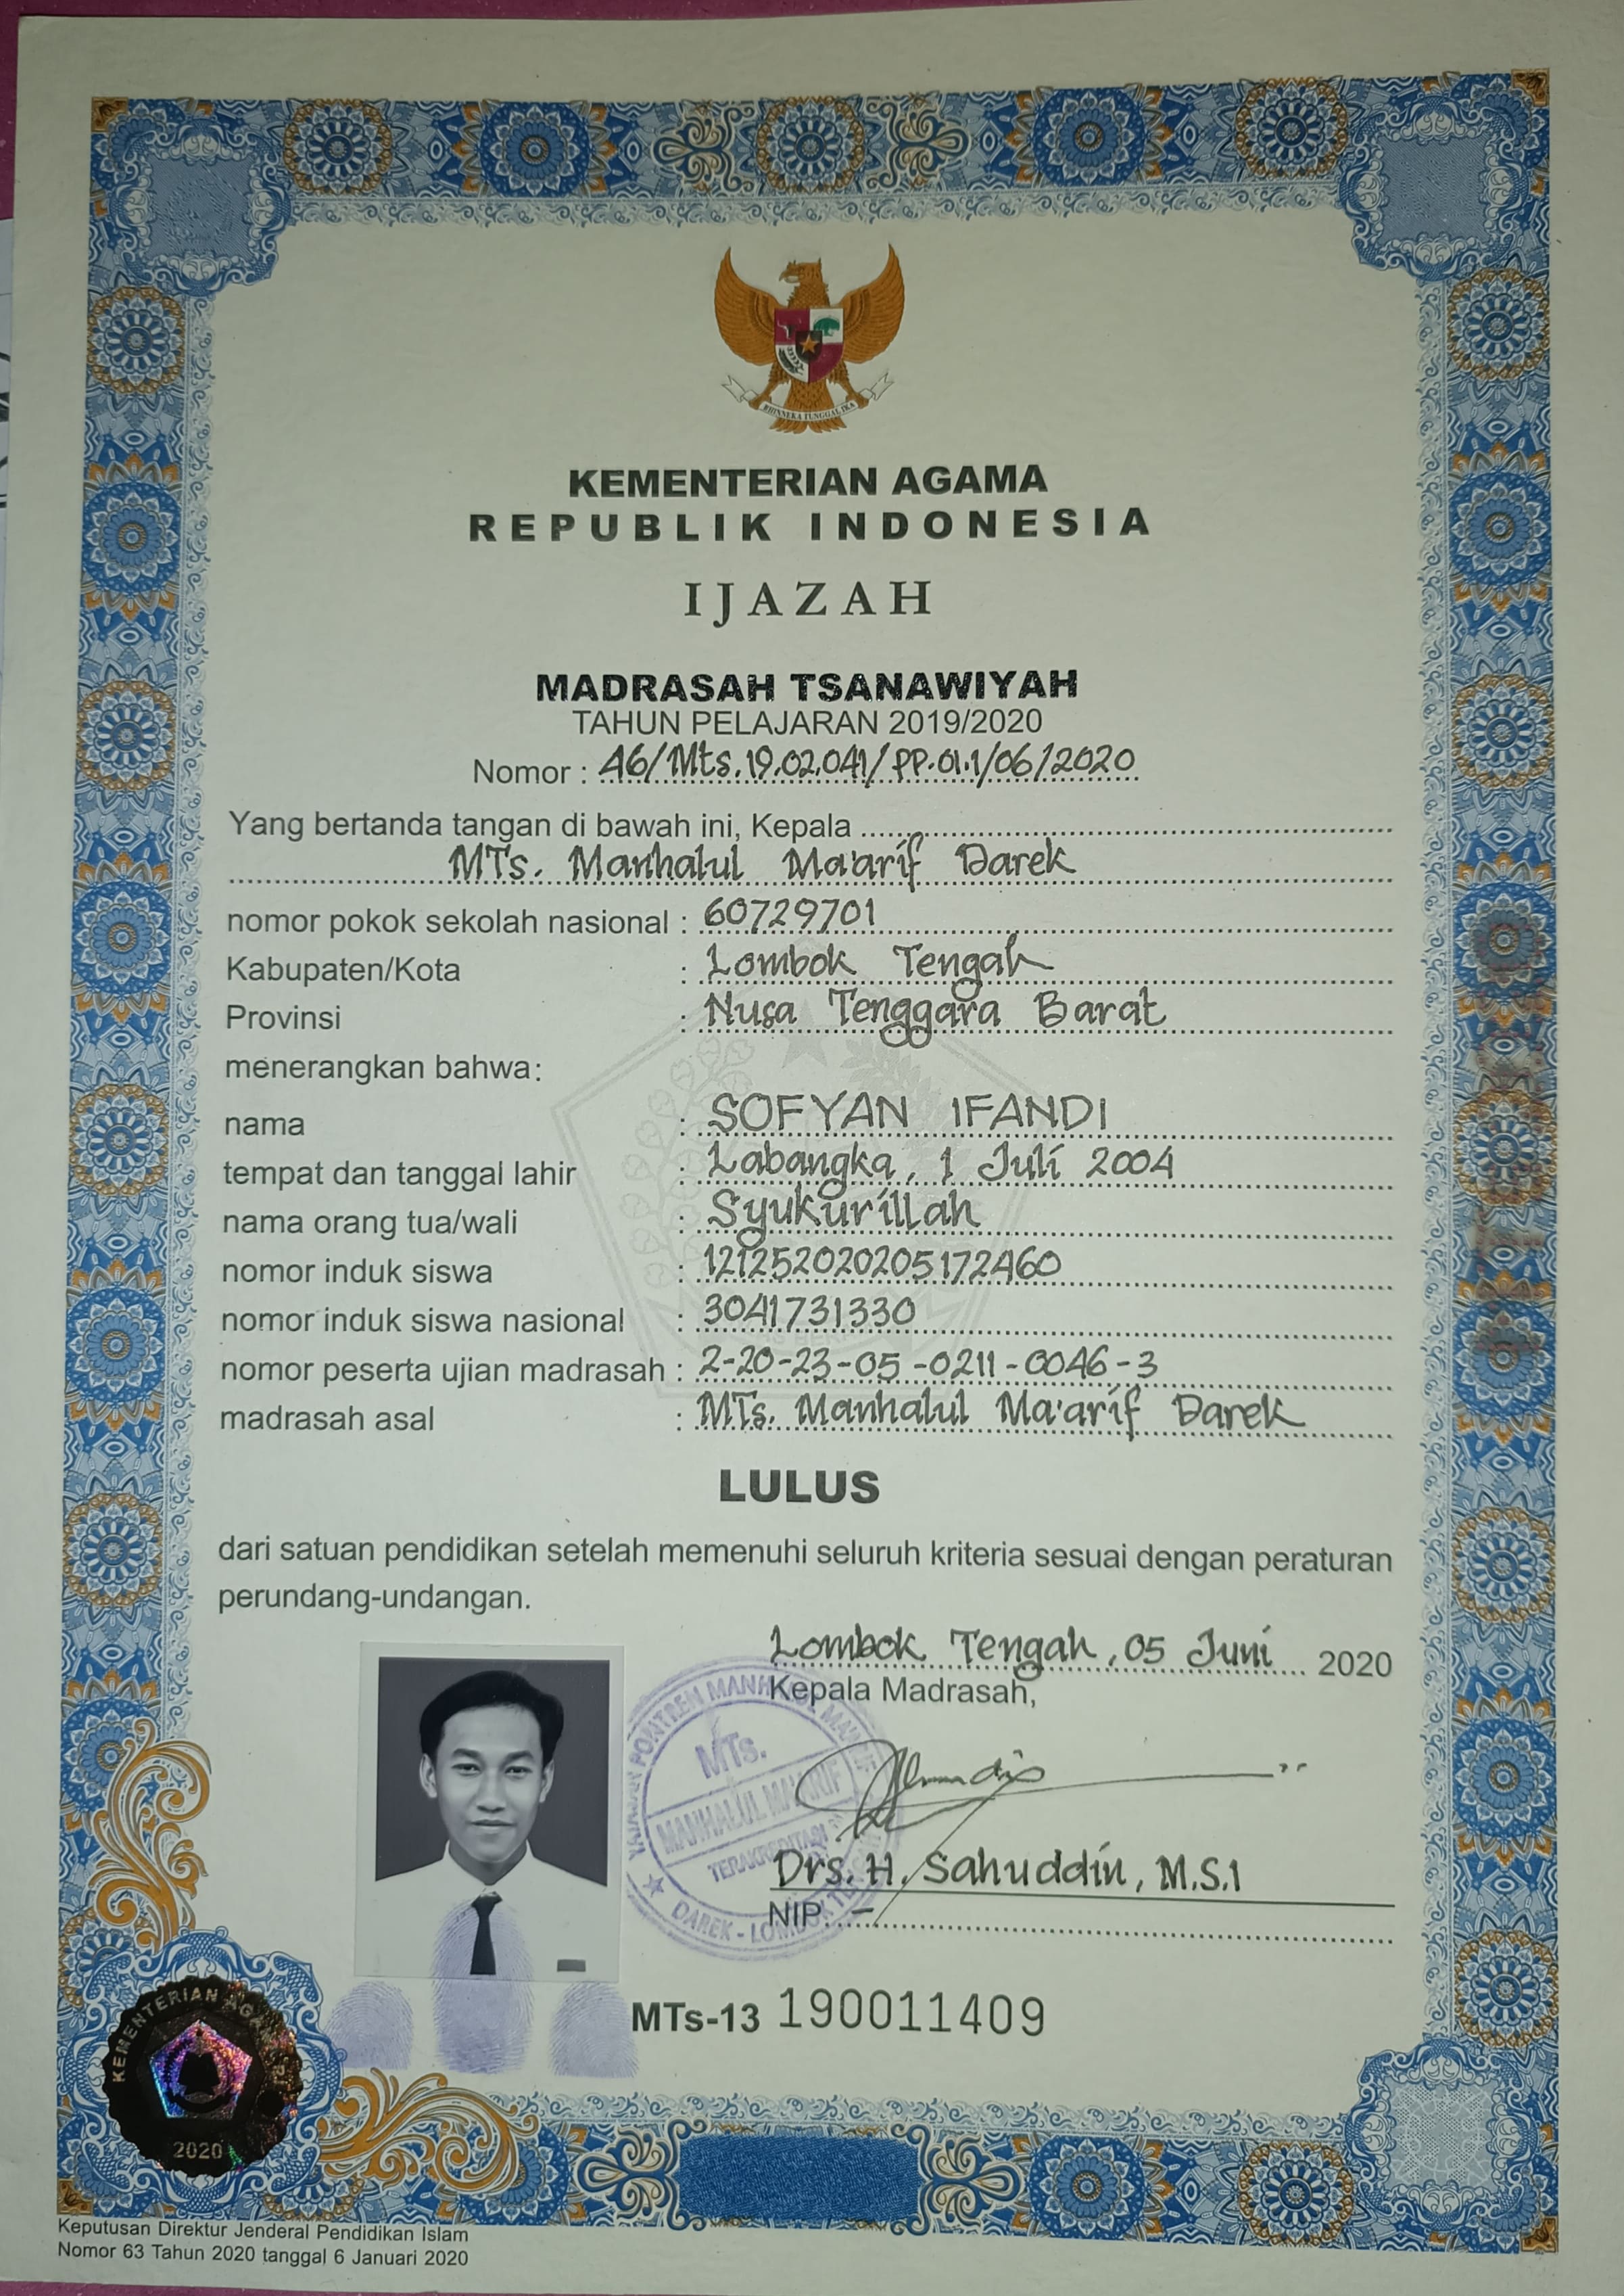 BHINNEKA TUNGGAL IKA
KEMENTERIAN AGAMA
REPUBLIK INDONESIA
IJAZAH
MADRASAH TSANAWIYAH
TAHUN PELAJARAN 2019/2020
Nomor : 46/Mts.19.02.041/PP.01.1/06/2020
Yang bertanda tangan di bawah ini, Kepala
MTs. Manhalul Ma'arif Darek
nomor pokok sekolah nasional : 60729701
Kabupaten/Kota : Lombok Tengah
Provinsi : Nusa Tenggara Barat
menerangkan bahwa:
nama : SOFYAN IFANDI
tempat dan tanggal lahir : Labangka, 1 Juli 2004
nama orang tua/wali : Syukurillah
nomor induk siswa : 121252020205172460
nomor induk siswa nasional : 3041731330
nomor peserta ujian madrasah : 2-20-23-05-0211-0046-3
madrasah asal : MTs. Manhalul Ma'arif Darek
LULUS
dari satuan pendidikan setelah memenuhi seluruh kriteria sesuai dengan peraturan
perundang-undangan.
Lombok Tengah, 05 Juni 2020
Kepala Madrasah,
MTs.
MANHALUL MA'ARIF
DAREK - LOMBOK
Drs. H. Sahuddin, M.S.I
NIP. -
MTs-13 190011409
KEMENTERIAN AGAMA
2020
Keputusan Direktur Jenderal Pendidikan Islam
Nomor 63 Tahun 2020 tanggal 6 Januari 2020